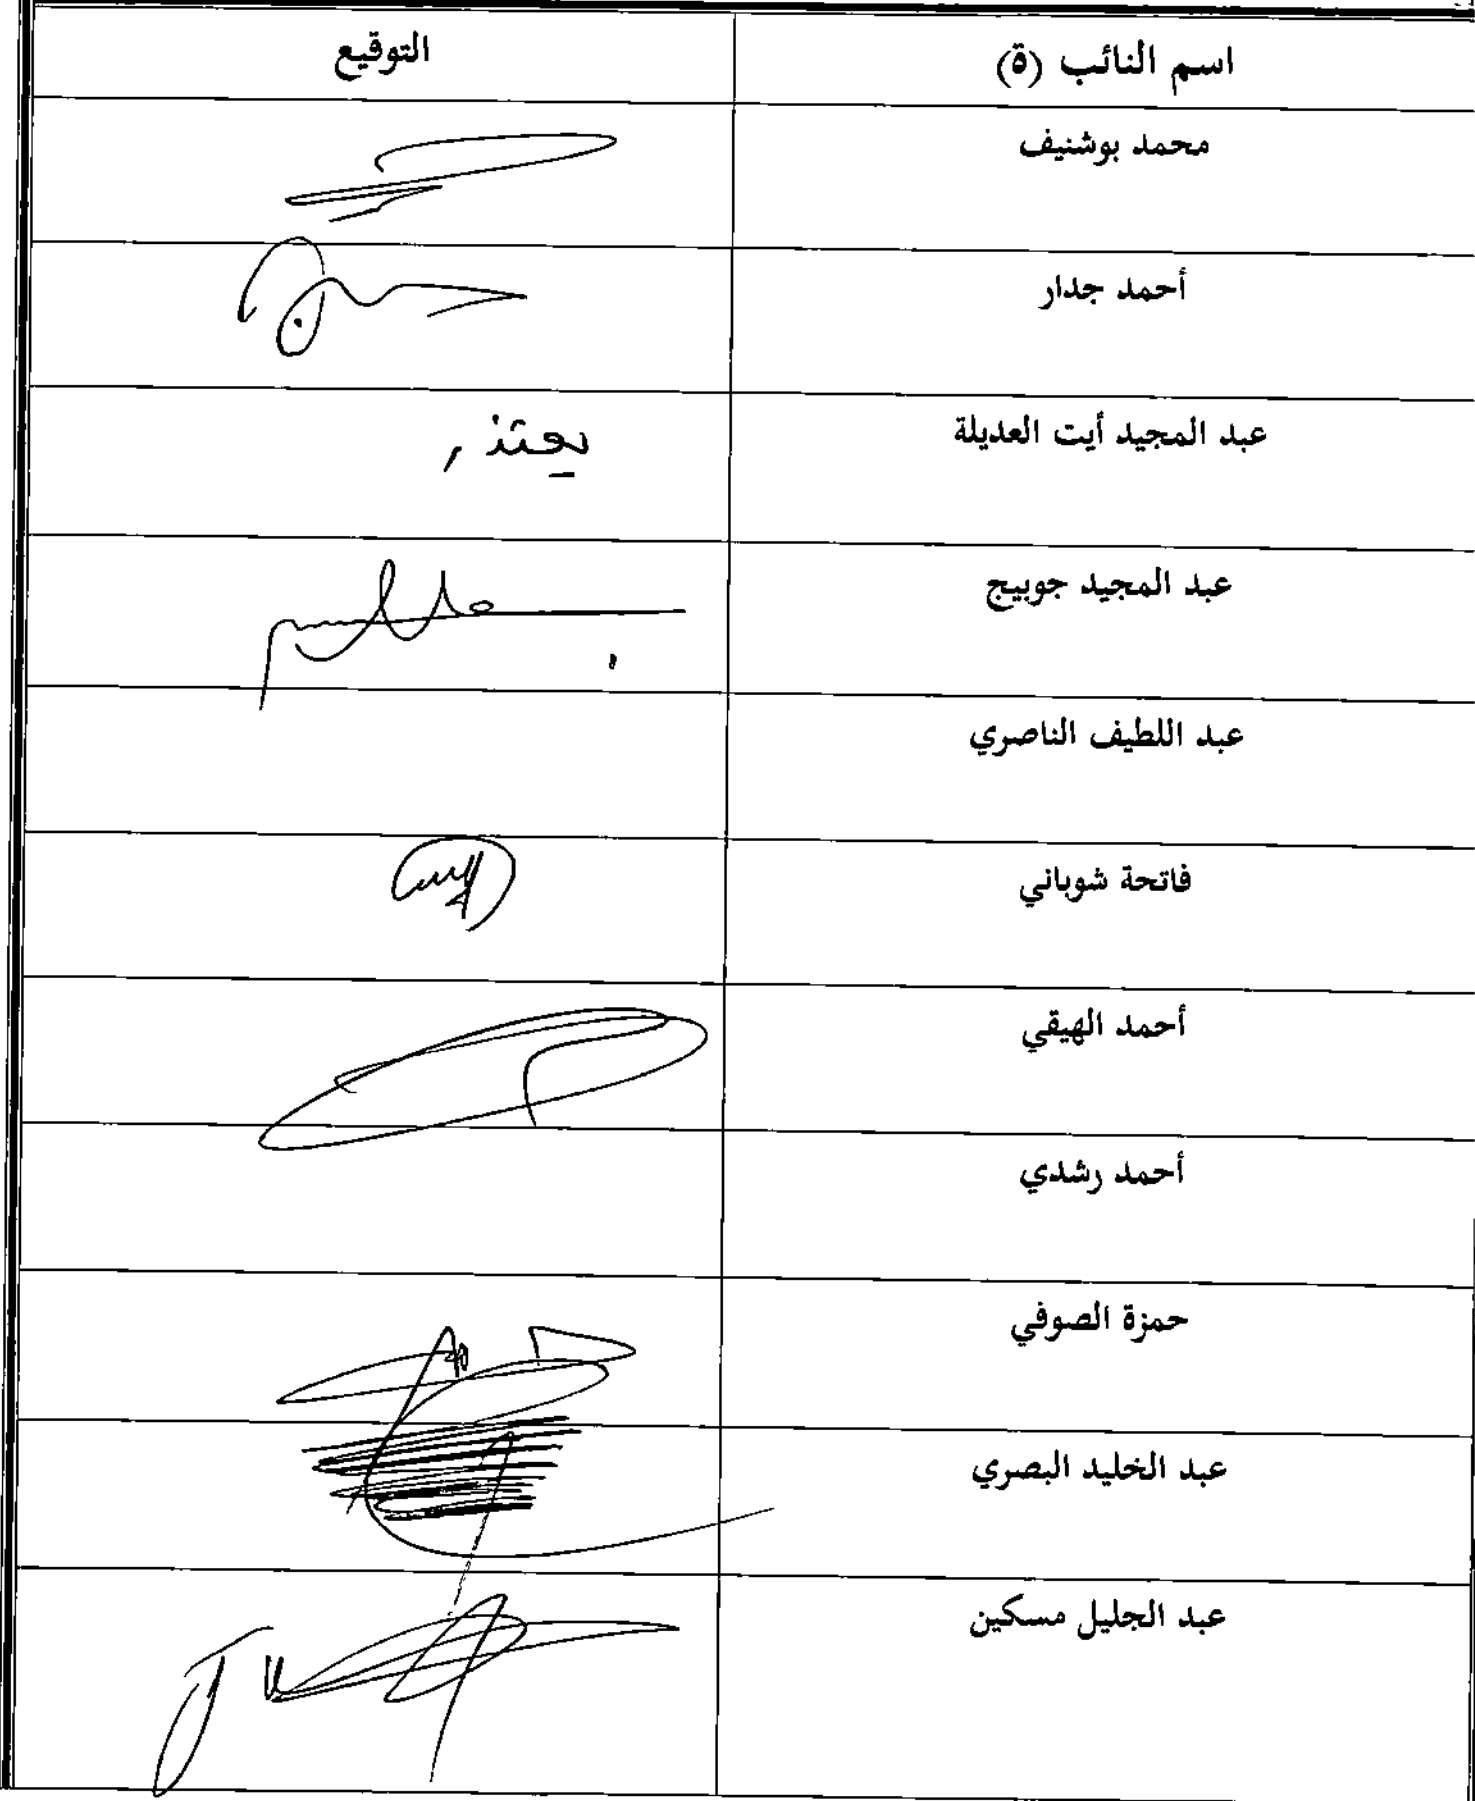 اسم النائب (ة) التوقيع
محمد بوشنيف
أحمد جدار
عبد المجيد أيت العديلة يعتذر
عبد المجيد جوبيج
عبد اللطيف الناصري
فاتحة شوباني
أحمد الهيقي
أحمد رشدي
حمزة الصوفي
عبد الخليد البصري
عبد الجليل مسكين